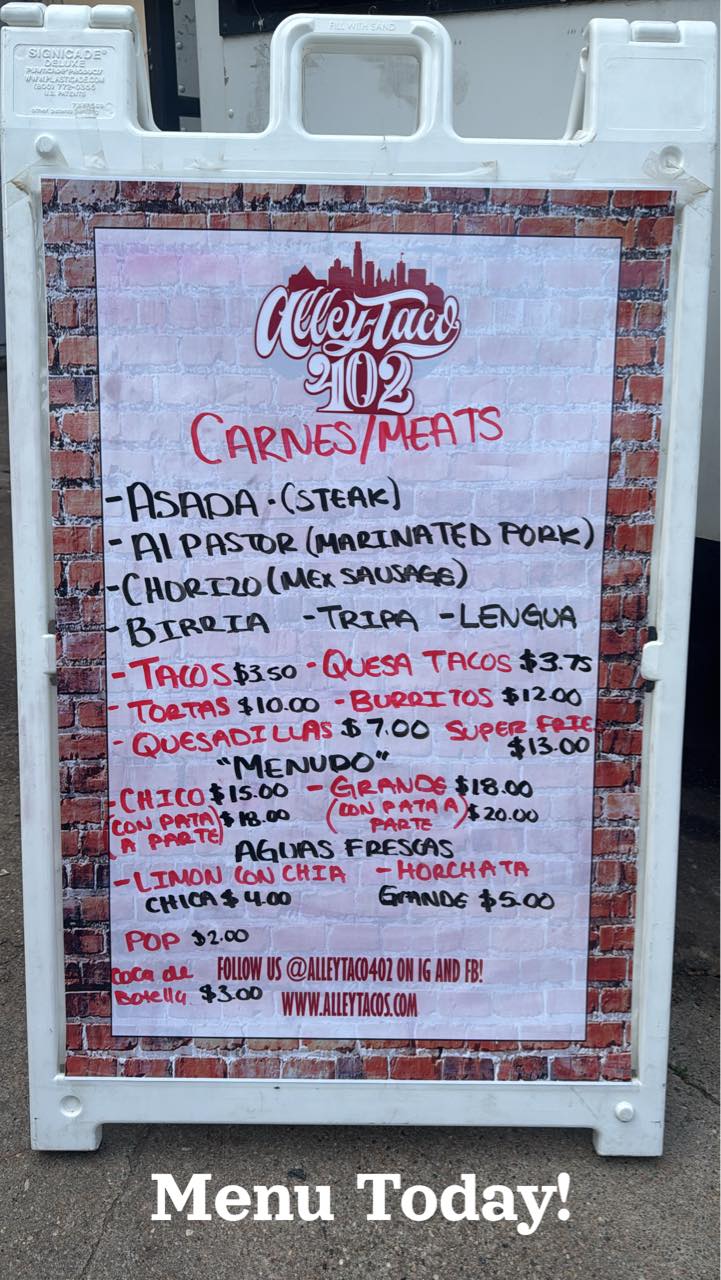 SIGNICADE®
DELUXE
WWW.PLASTICADE.COM
(800) 772-0355
U.S. PATENTS
FILL WITH SAND
Alley-Taco
402
CARNES/MEATS
- ASADA - (STEAK)
- Al PASTOR (MARINATED PORK)
- CHORIZO (MEX SAUSAGE)
- BIRRIA - TRIPA - LENGUA
- TACOS $3.50 - QUESA TACOS $3.75
- TORTAS $10.00 - BURRITOS $12.00
- QUESADILLAS $7.00 SUPER FRIE
$13.00
"MENUDO"
- CHICO $15.00 - GRANDE $18.00
(CON PATA A PARTE) $18.00 (CON PATA A PARTE) $20.00
AGUAS FRESCAS
- LIMON CON CHIA - HORCHATA
CHICA $4.00 GRANDE $5.00
POP $2.00
Coca de Botella $3.00
FOLLOW US @ALLEYTACO402 ON IG AND FB!
WWW.ALLEYTACOS.COM
Menu Today!